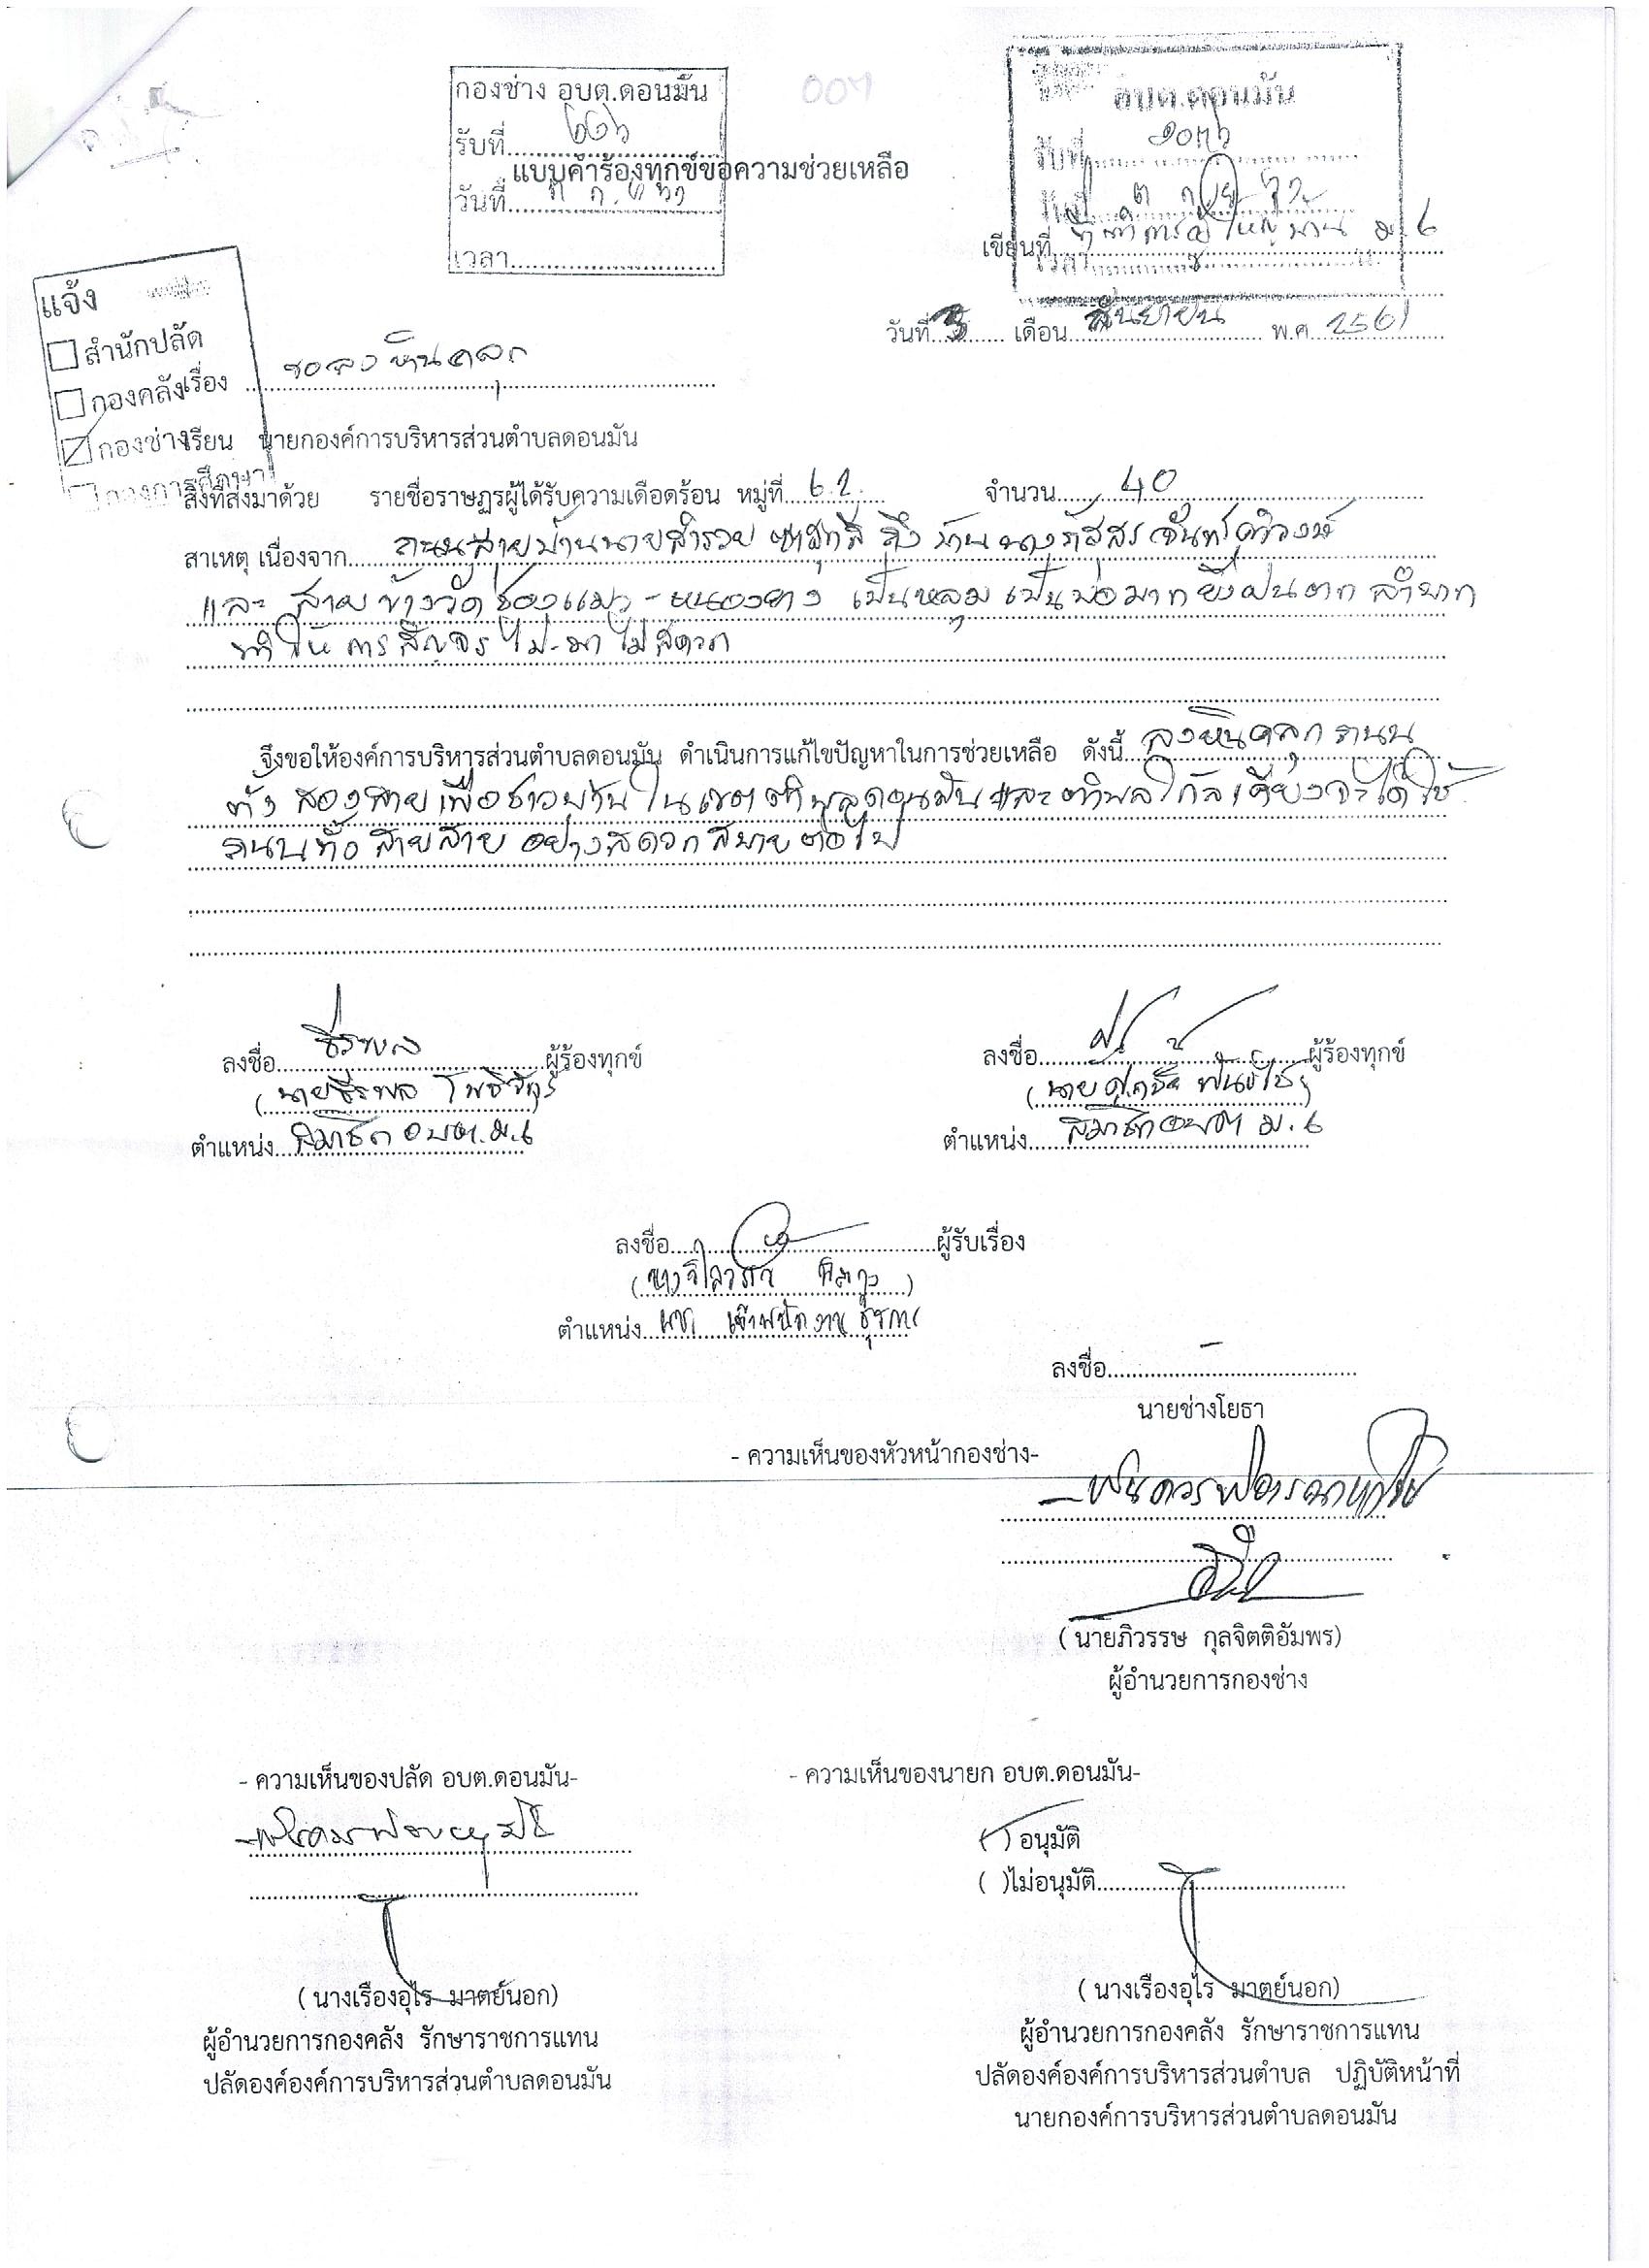 กองช่าง อบต.ดอนมัน
รับที่ ๖๖๖
วันที่
เวลา
อบต.ดอนมัน
รับที่
วันที่
เวลา
แบบคำร้องทุกข์ขอความช่วยเหลือ
เขียนที่ ที่ทำการผู้ใหญ่บ้าน ม.6
วันที่ 3 เดือน กันยายน พ.ศ. 2561
แจ้ง
สำนักปลัด
กองคลัง
กองช่าง
กองการศึกษา
เรื่อง ขอลงหินคลุก
เรียน นายกองค์การบริหารส่วนตำบลดอนมัน
สิ่งที่ส่งมาด้วย รายชื่อราษฎรผู้ได้รับความเดือดร้อน หมู่ที่ 6 จำนวน 40
สาเหตุ เนื่องจาก ถนนสายบ้านนายสำรวย ถึง บ้านนาง
และ สายข้างวัดช่องแมว - หนองยาง เป็นหลุมเป็นบ่อมาก ยิ่งฝนตก ลำบาก
ทำให้การสัญจร ไป-มา ไม่สดวก
จึงขอให้องค์การบริหารส่วนตำบลดอนมัน ดำเนินการแก้ไขปัญหาในการช่วยเหลือ ดังนี้ ลงหินคลุก ถนน
ทั้ง สองสายเพื่อชาวบ้านในเขตตำบลดอนมันและตำบลใกล้เคียงจะได้ใช้
ถนนทั้ง สายสาย อย่างสดวกสบายต่อไป
ลงชื่อ ธีรพล ผู้ร้องทุกข์
(นายธีรพล โพธิจักร)
ตำแหน่ง สมาชิก อบต. ม.6
ลงชื่อ ผู้ร้องทุกข์
(นาย
ตำแหน่ง สมาชิก อบต ม.6
ลงชื่อ ผู้รับเรื่อง
(นาง
ตำแหน่ง ผช. เจ้าพนักงานธุรการ
ลงชื่อ
นายช่างโยธา
- ความเห็นของหัวหน้ากองช่าง-
- เห็นควรพิจารณาแก้ไข
( นายภิวรรษ กุลจิตติอัมพร)
ผู้อำนวยการกองช่าง
- ความเห็นของปลัด อบต.ดอนมัน-
- เห็นควร
( นางเรืองอุไร มาตย์นอก)
ผู้อำนวยการกองคลัง รักษาราชการแทน
ปลัดองค์องค์การบริหารส่วนตำบลดอนมัน
- ความเห็นของนายก อบต.ดอนมัน-
(/) อนุมัติ
( )ไม่อนุมัติ
( นางเรืองอุไร มาตย์นอก)
ผู้อำนวยการกองคลัง รักษาราชการแทน
ปลัดองค์องค์การบริหารส่วนตำบล ปฏิบัติหน้าที่
นายกองค์การบริหารส่วนตำบลดอนมัน